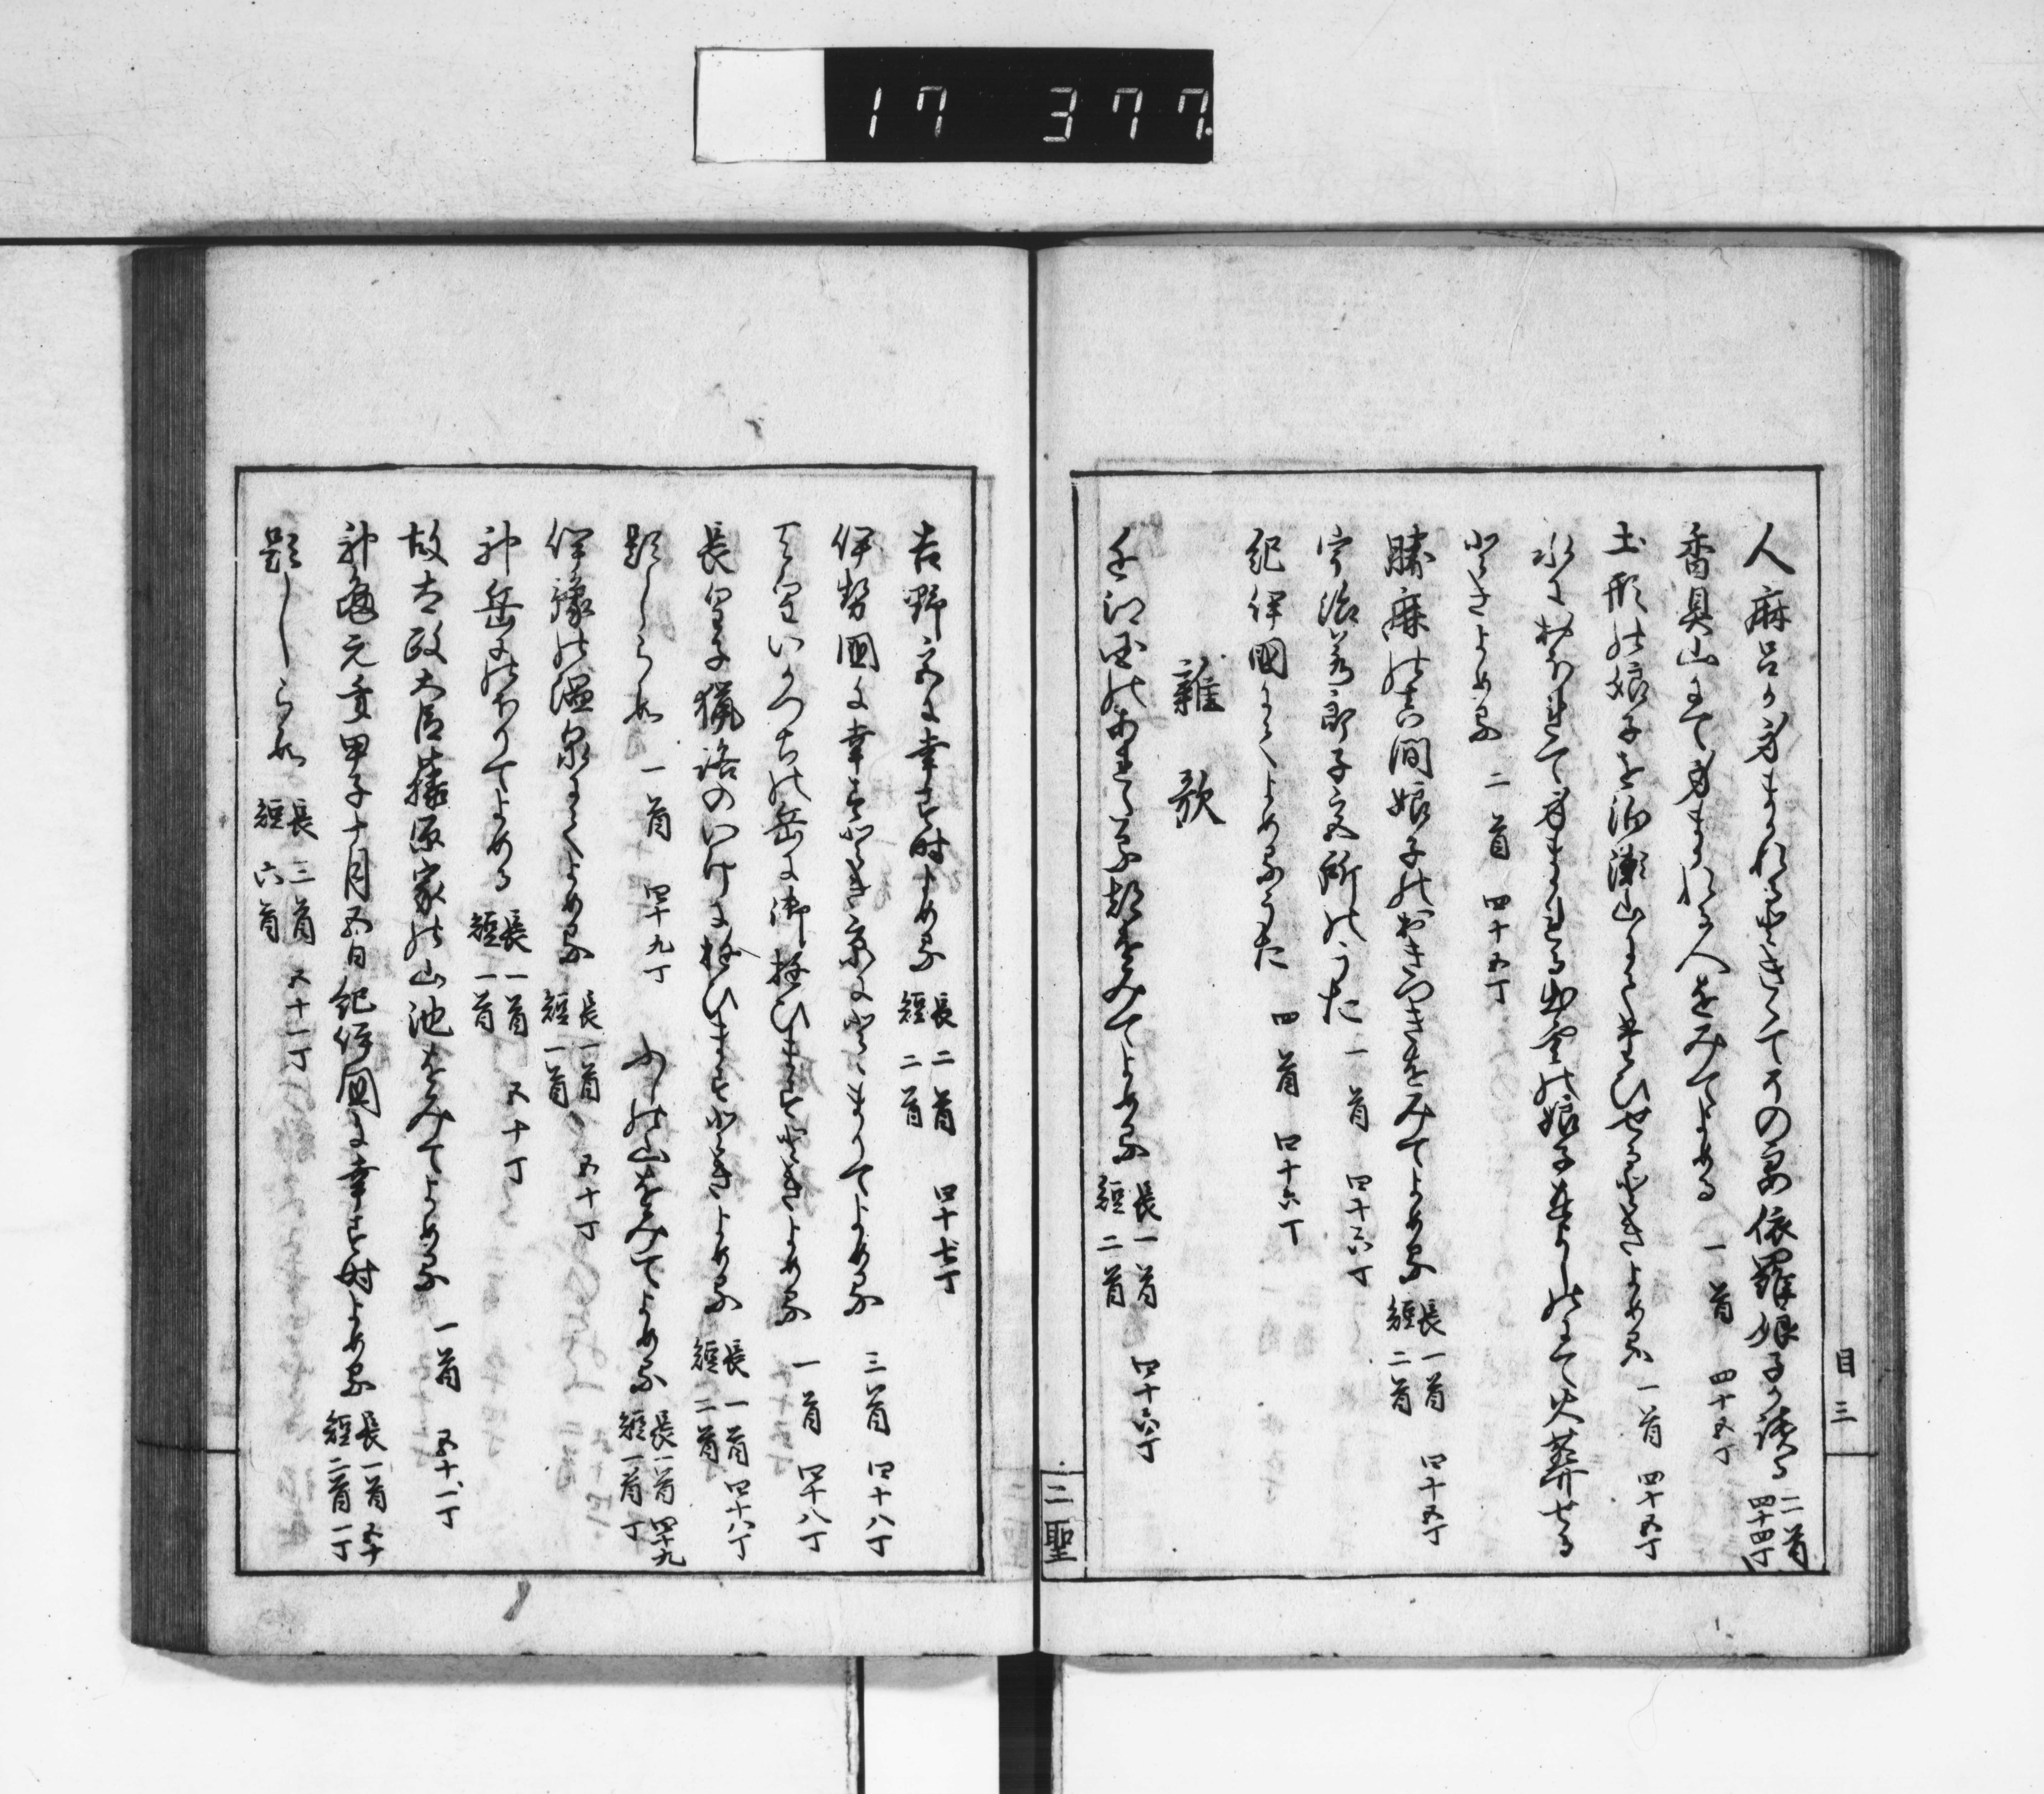 17 377
人麻呂か身まかれるときゝてその妻依羅娘子か読る 二首 四十四丁
香具山にて身まかれる人をみてよめる 一首 四十五丁
土形の娘子を泊瀬山にてはふりせるときよめる 一首 四十五丁
水におほれて身まかれる出雲の娘子をよしのにて火葬せる
ときよめる 二首 四十五丁
勝鹿の真間娘子のおきつきをみてよめる 長一首 短二首 四十五丁
宇治若郎子宮所のうた 一首 四十六丁
紀伊國にてよめるうた 四首 四十六丁
雜歌
近江國のあれたる都をみてよめる 長一首 短二首 四十六丁
目三
二聖
吉野宮に幸す時よめる 長二首 短二首 四十七丁
伊勢國に幸すとき京にとゝまりてよめる 三首 四十八丁
天皇いかつちの岳に御遊ひますときよめる 一首 四十八丁
長皇子猟路のいけに遊ひますときよめる 長一首 短二首 四十八丁
題しらす 一首 四十九丁 ふしの山をみてよめる 長一首 短一首 四十九丁
伊豫の温泉にてよめる 長一首 短一首 五十丁
神岳にのほりてよめる 長一首 短一首 五十丁
故太政大臣藤原家の山池をみてよめる 一首 五十一丁
神亀元年甲子十月五日紀伊國に幸す時よめる 長一首 短二首 五十一丁
題しらす 長三首 短六首 五十一丁